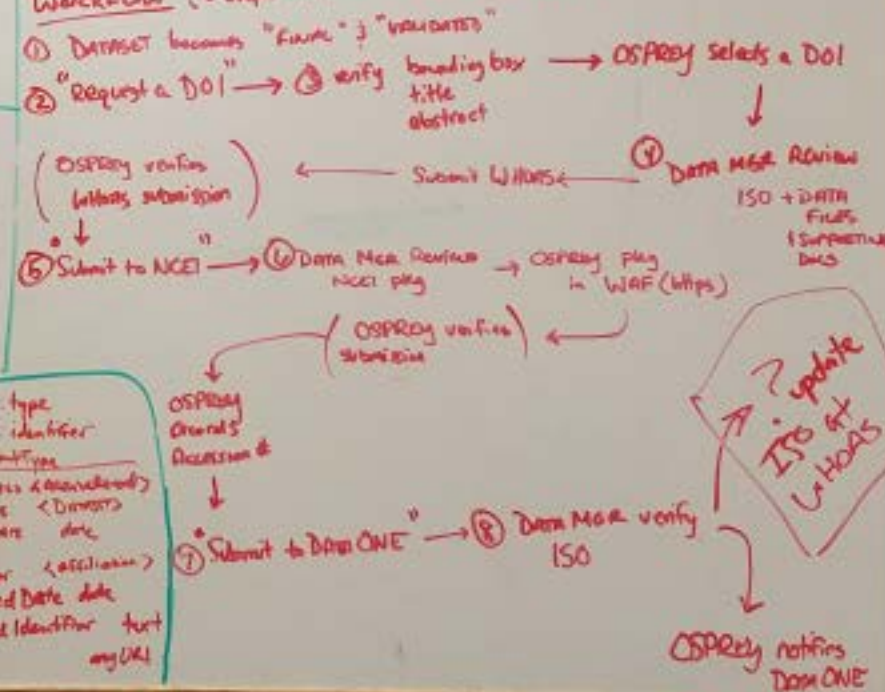 ① DATASET becomes "FINAL" & "VALIDATED"
② "Request a DOI" → ③ verify bounding box → OSPREY selects a DOI
title
abstract
④ DATA MGR REVIEW
ISO + DATA
FILES
& SUPPORTING
DOCS
Submit WHOAS
(OSPREY verifies
WHOAS submission)
⑤ "Submit to NCEI" → ⑥ DATA MGR REVIEWS → OSPREY pkg
NCEI pkg in WAF (https)
(OSPREY verifies
submission)
OSPREY
Records
Accession #
⑦ "Submit to DATAONE" → ⑧ DATA MGR verify
ISO
? update
ISO at
WHOAS
OSPREY notifies
DATAONE
type
identifier
<DATASET>
date
<affiliation>
Date date
Identifier text
anyURI